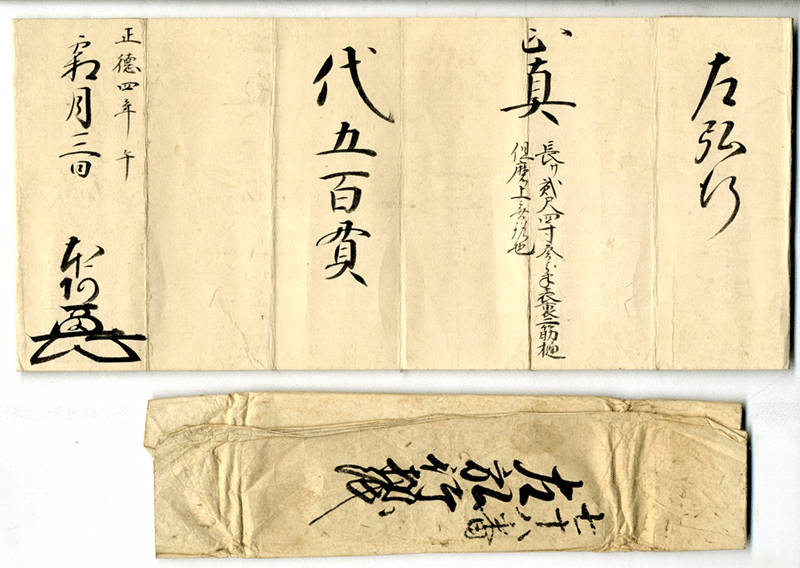 左弘行
正真
長サ貳尺四寸参分半表裏二筋樋
但磨上無銘也
代五百貫
正徳四年午
霜月三日
本阿
七十八番
左弘行